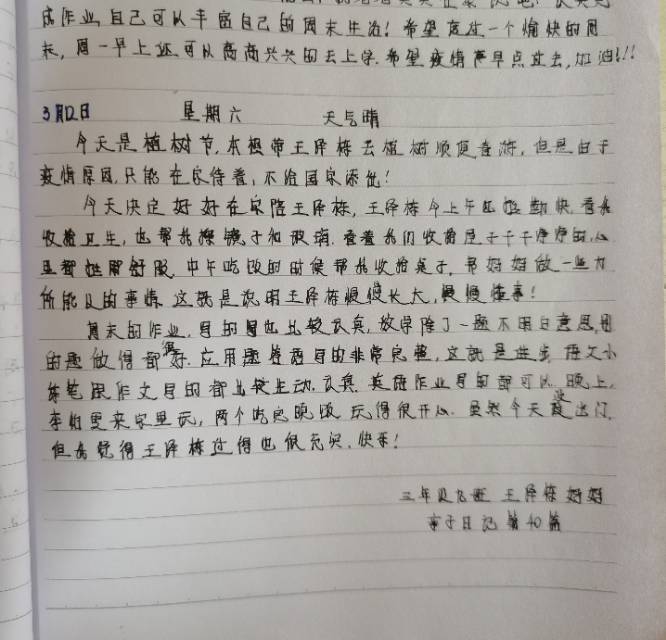 成作业,自己可以丰富自己的周末生活!希望度过一个愉快的周
末,周一早上还可以高高兴兴的去上学.希望疫情早点过去,加油!!!
3月12日 星期六 天气晴
今天是植树节,本想带王泽栋去植树顺便春游,但是由于
疫情原因,只能在家待着,不给国家添乱!
今天决定好好在家陪王泽栋,王泽栋今上午也挺勤快,看我
收拾卫生,也帮我擦镜子和玻璃.看着我们收拾屋子干干净净的,心
里都挺舒服,中午吃饭的时候帮我收拾桌子,帮妈妈做一些力
所能及的事情,这就是说明王泽栋慢慢长大,慢慢懂事!
周末的作业,写的写也比较认真,数学除了一题不明白意思,别
的题做得都很好.应用题答题写的非常完整,这就是进步,语文小
练笔跟作文写的都比较生动,认真,英语作业写的都可以.晚上,
李灿里来家里玩,两个吃完晚饭玩得很开心.虽然今天没出门,
但我觉得王泽栋过得也很充实.快乐!
三年级九班 王泽栋妈妈
亲子日记第40篇